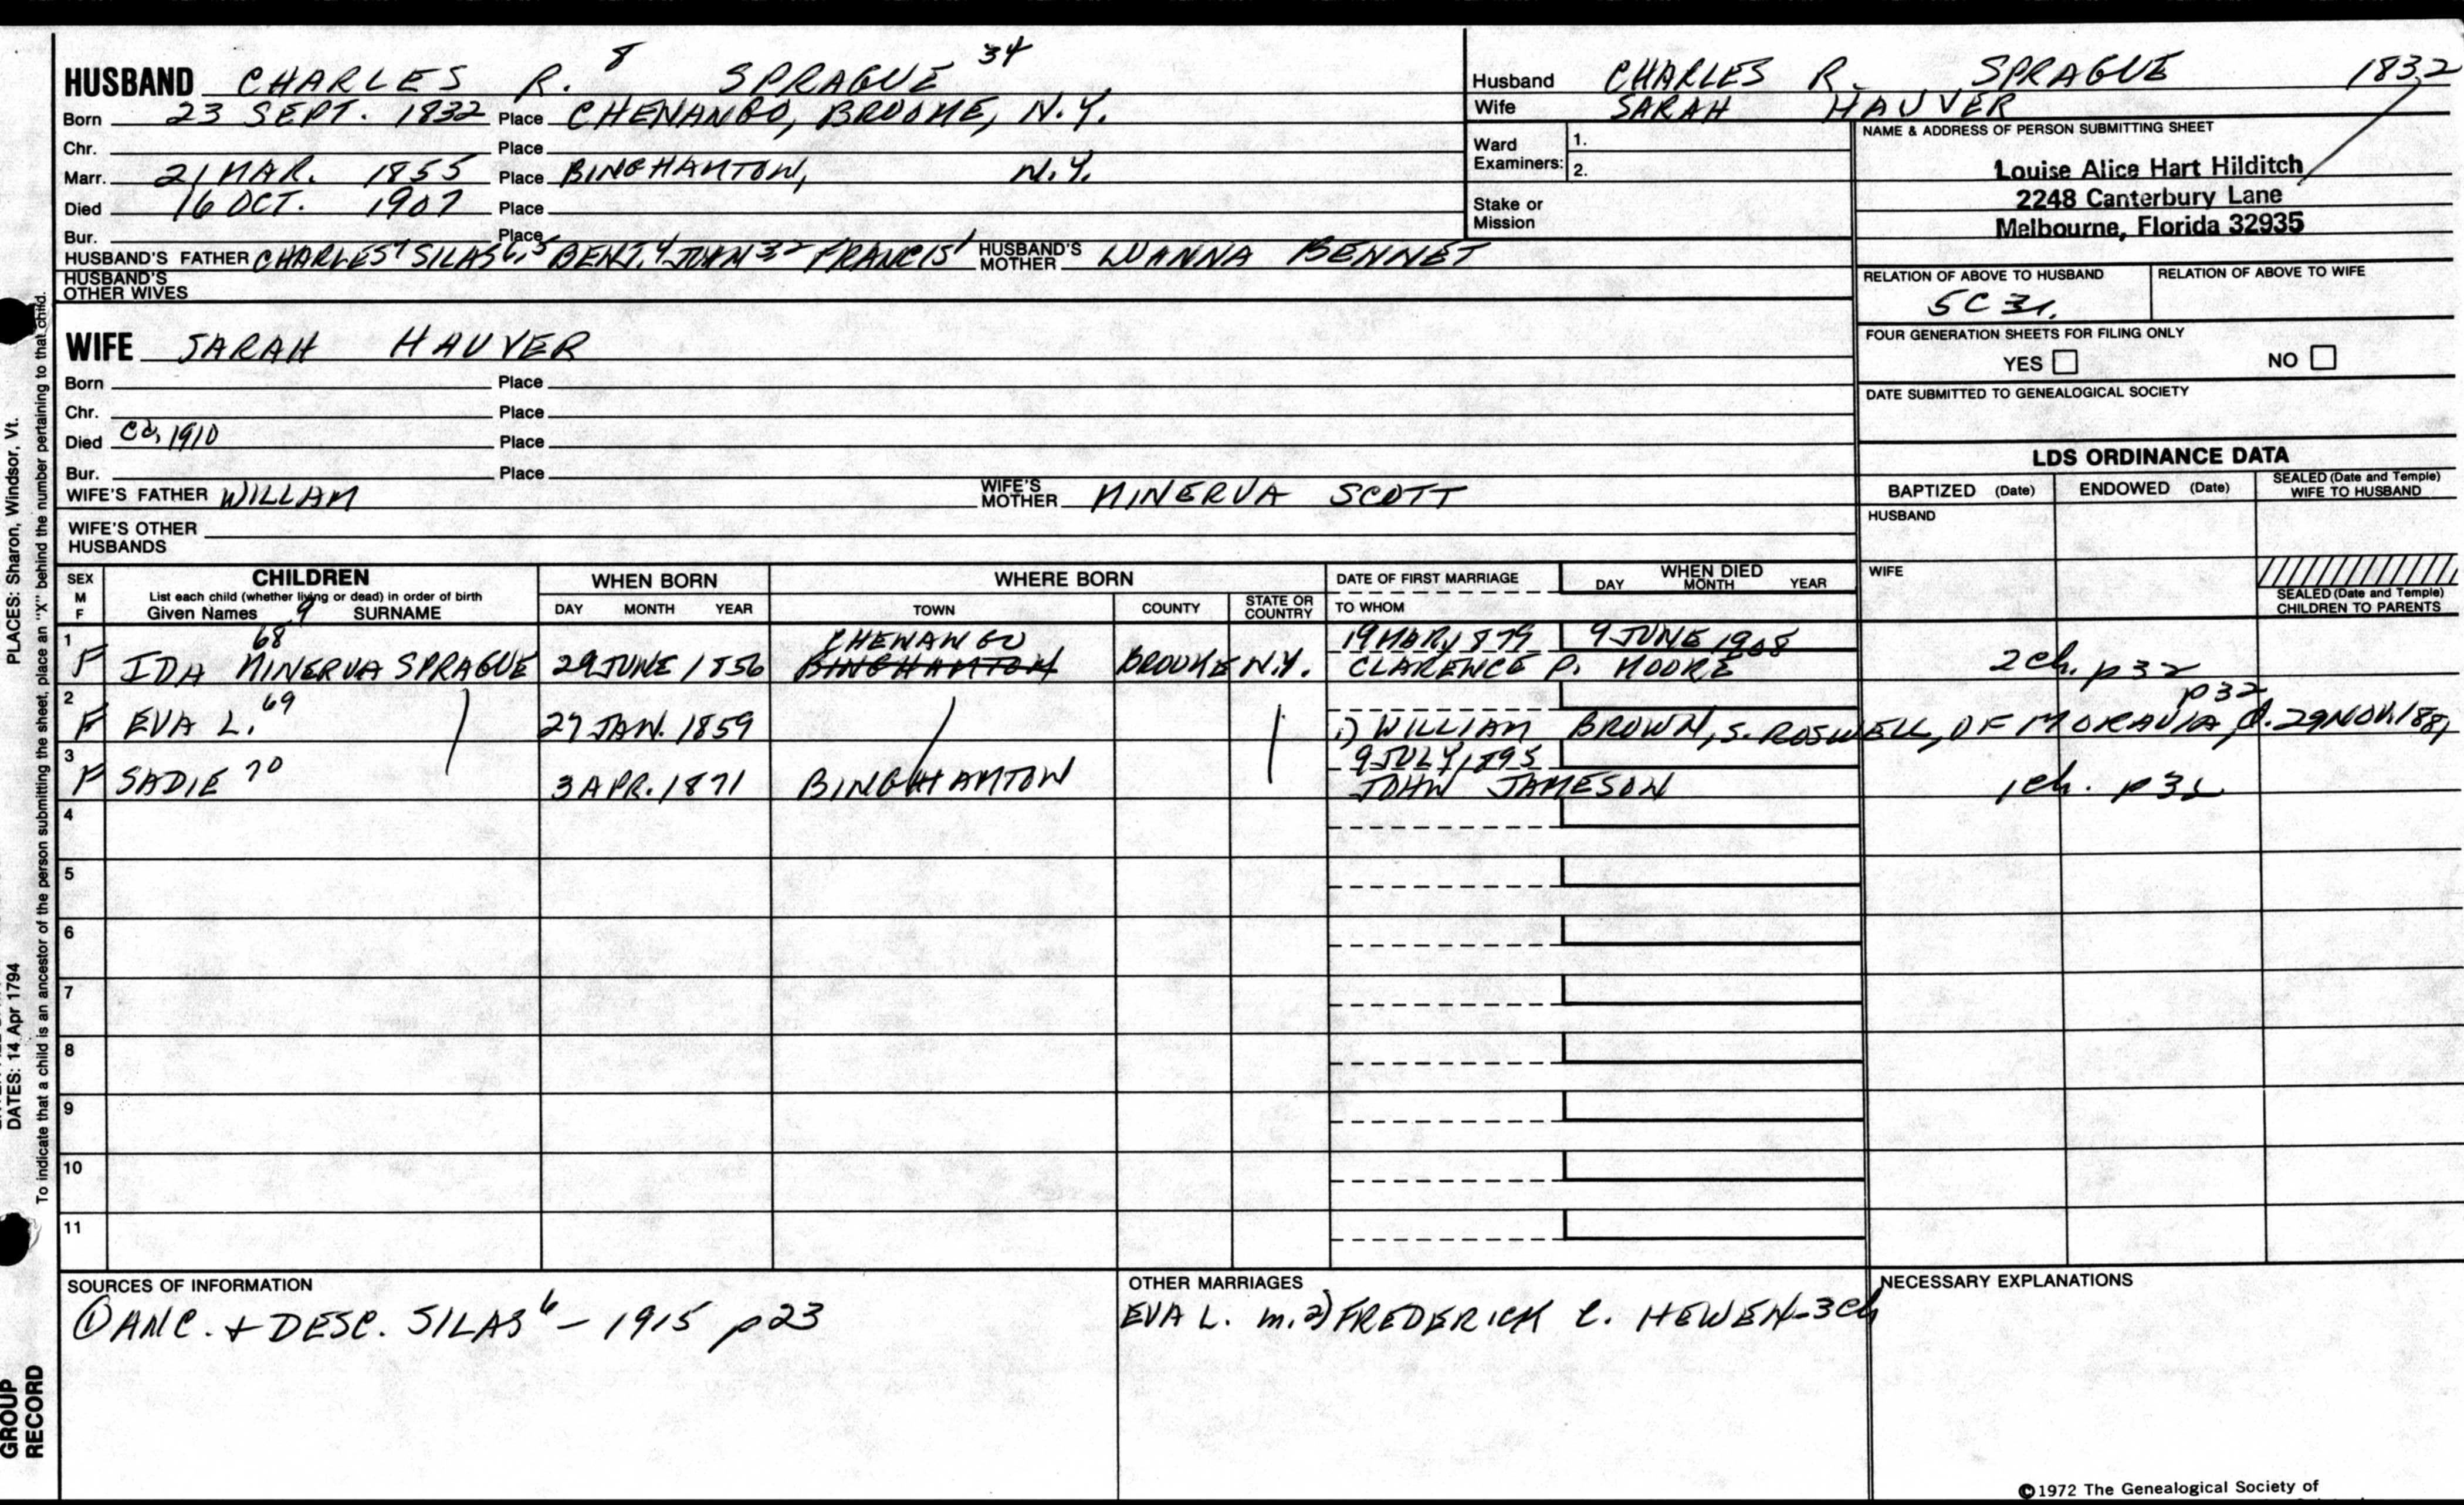 HUSBAND CHARLES R. 8 SPRAGUE 34
Born 23 SEPT. 1832 Place CHENANGO, BROOME, N.Y.
Chr. Place
Marr. 21 MAR. 1855 Place BINGHAMTON, N.Y.
Died 16 OCT. 1907 Place
Bur. Place
HUSBAND'S FATHER CHARLES7 SILAS6,5 BENJ.4 JOHN32 FRANCIS1 HUSBAND'S MOTHER LUANNA BENNET
HUSBAND'S OTHER WIVES
Husband CHARLES R. SPRAGUE 1832
Wife SARAH HAUVER
Ward Examiners: 1.
2.
Stake or Mission
NAME & ADDRESS OF PERSON SUBMITTING SHEET
Louise Alice Hart Hilditch
2248 Canterbury Lane
Melbourne, Florida 32935
RELATION OF ABOVE TO HUSBAND RELATION OF ABOVE TO WIFE
5C
FOUR GENERATION SHEETS FOR FILING ONLY
YES NO
DATE SUBMITTED TO GENEALOGICAL SOCIETY
WIFE SARAH HAUVER
Born Place
Chr. Place
Died ca, 1910 Place
Bur. Place
WIFE'S FATHER WILLAM WIFE'S MOTHER MINERVA SCOTT
WIFE'S OTHER HUSBANDS
LDS ORDINANCE DATA
BAPTIZED (Date) ENDOWED (Date) SEALED (Date and Temple) WIFE TO HUSBAND
HUSBAND
WIFE
SEALED (Date and Temple) CHILDREN TO PARENTS
SEX M F CHILDREN WHEN BORN WHERE BORN DATE OF FIRST MARRIAGE WHEN DIED
List each child (whether living or dead) in order of birth
Given Names 9 SURNAME DAY MONTH YEAR TOWN COUNTY STATE OR COUNTRY TO WHOM DAY MONTH YEAR
68 CHENANGO 19 MAR 1879 9 JUNE 1908
1 F IDA MINERVA SPRAGUE 29 JUNE 1856 BINGHAMTON BROOME N.Y. CLARENCE P. MOORE 2ch. p32
p32
2 F EVA L. 69 27 JAN. 1859 1) WILLIAM BROWN, S. ROSWELL, OF MORAVIA, d. 29 NOV. 1881
9 JULY 1895
3 F SADIE 70 3 APR. 1871 BINGHAMTON JOHN JAMESON 1ch. p32
4
5
6
7
8
9
10
11
SOURCES OF INFORMATION
① ANC. + DESC. SILAS6 - 1915 p23
OTHER MARRIAGES
EVA L. m. 2) FREDERICK C. HEWEN-3ch
NECESSARY EXPLANATIONS
©1972 The Genealogical Society of
PLACES: Sharon, Windsor, Vt.
DATES: 14 Apr 1794
To indicate that a child is an ancestor of the person submitting the sheet, place an "X" behind the number pertaining to that child.
GROUP
RECORD